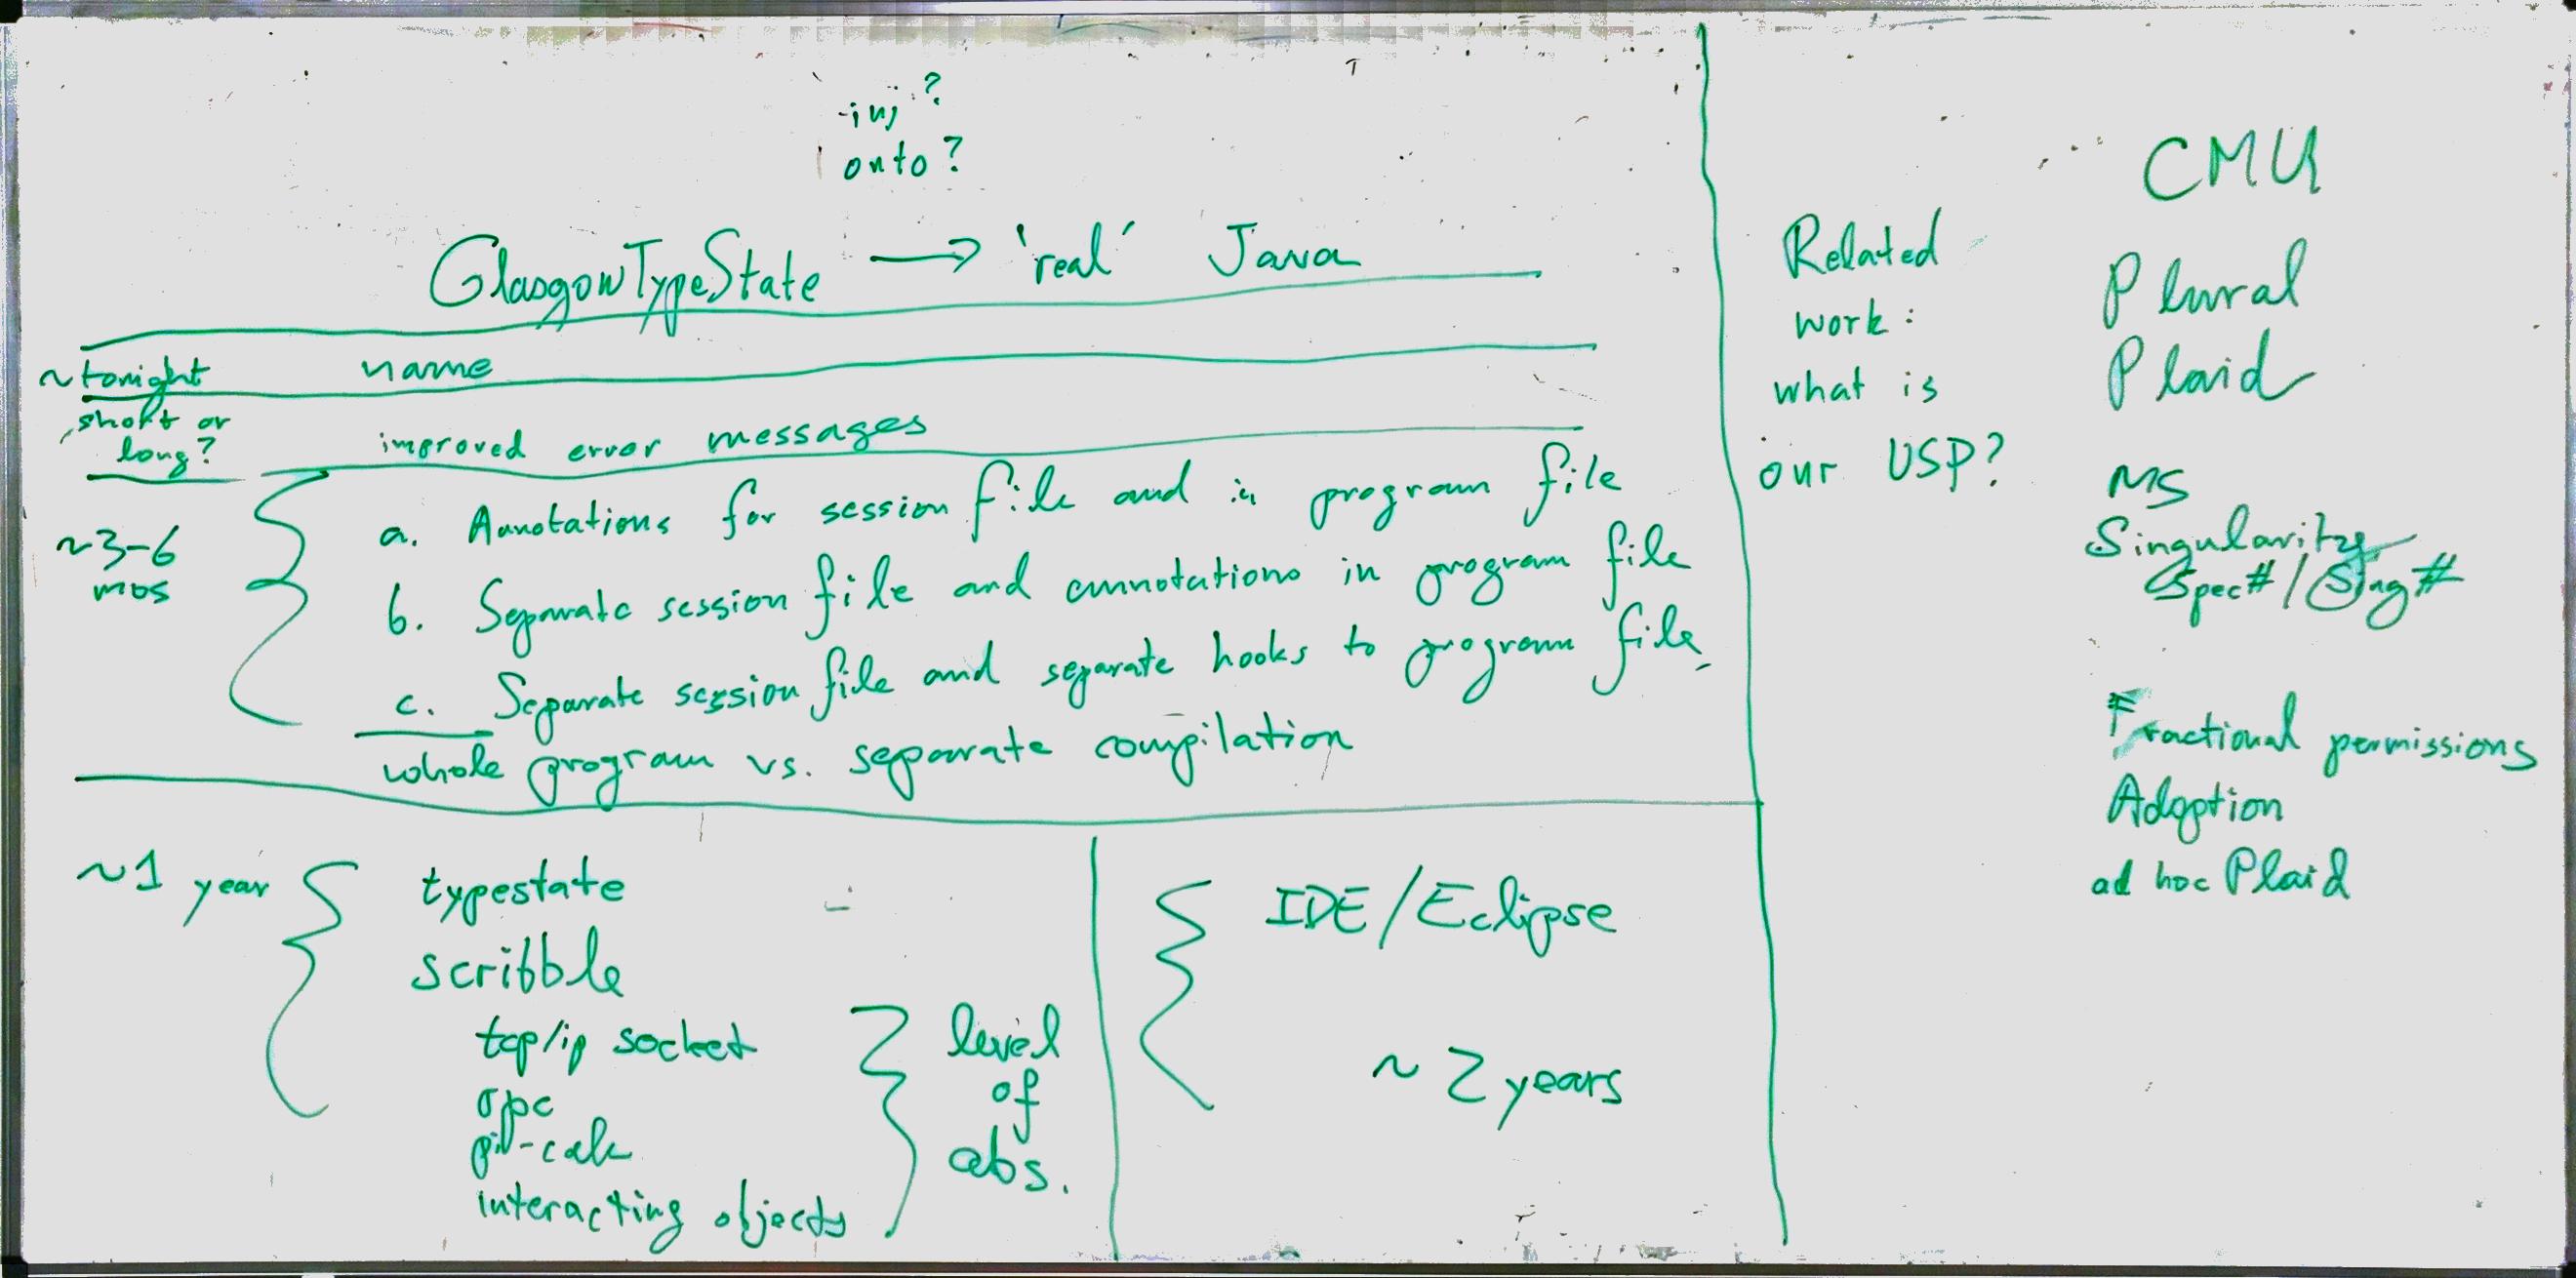 inj?
onto?
GlasgowTypeState → 'real' Java
~tonight name
short or
long?
improved error messages
~3-6
mos
a. Annotations for session file and in program file
b. Separate session file and annotations in program file
c. Separate session file and separate hooks to program file
whole program vs. separate compilation
~1 year
typestate
scribble
tcp/ip socket
rpc
pi-calc
interacting objects
level
of
abs.
IDE/Eclipse
~2 years
Related
work:
what is
our USP?
CMU
Plural
Plaid
MS
Singularity
Spec#/Sing#
Fractional permissions
Adoption
ad hoc Plaid